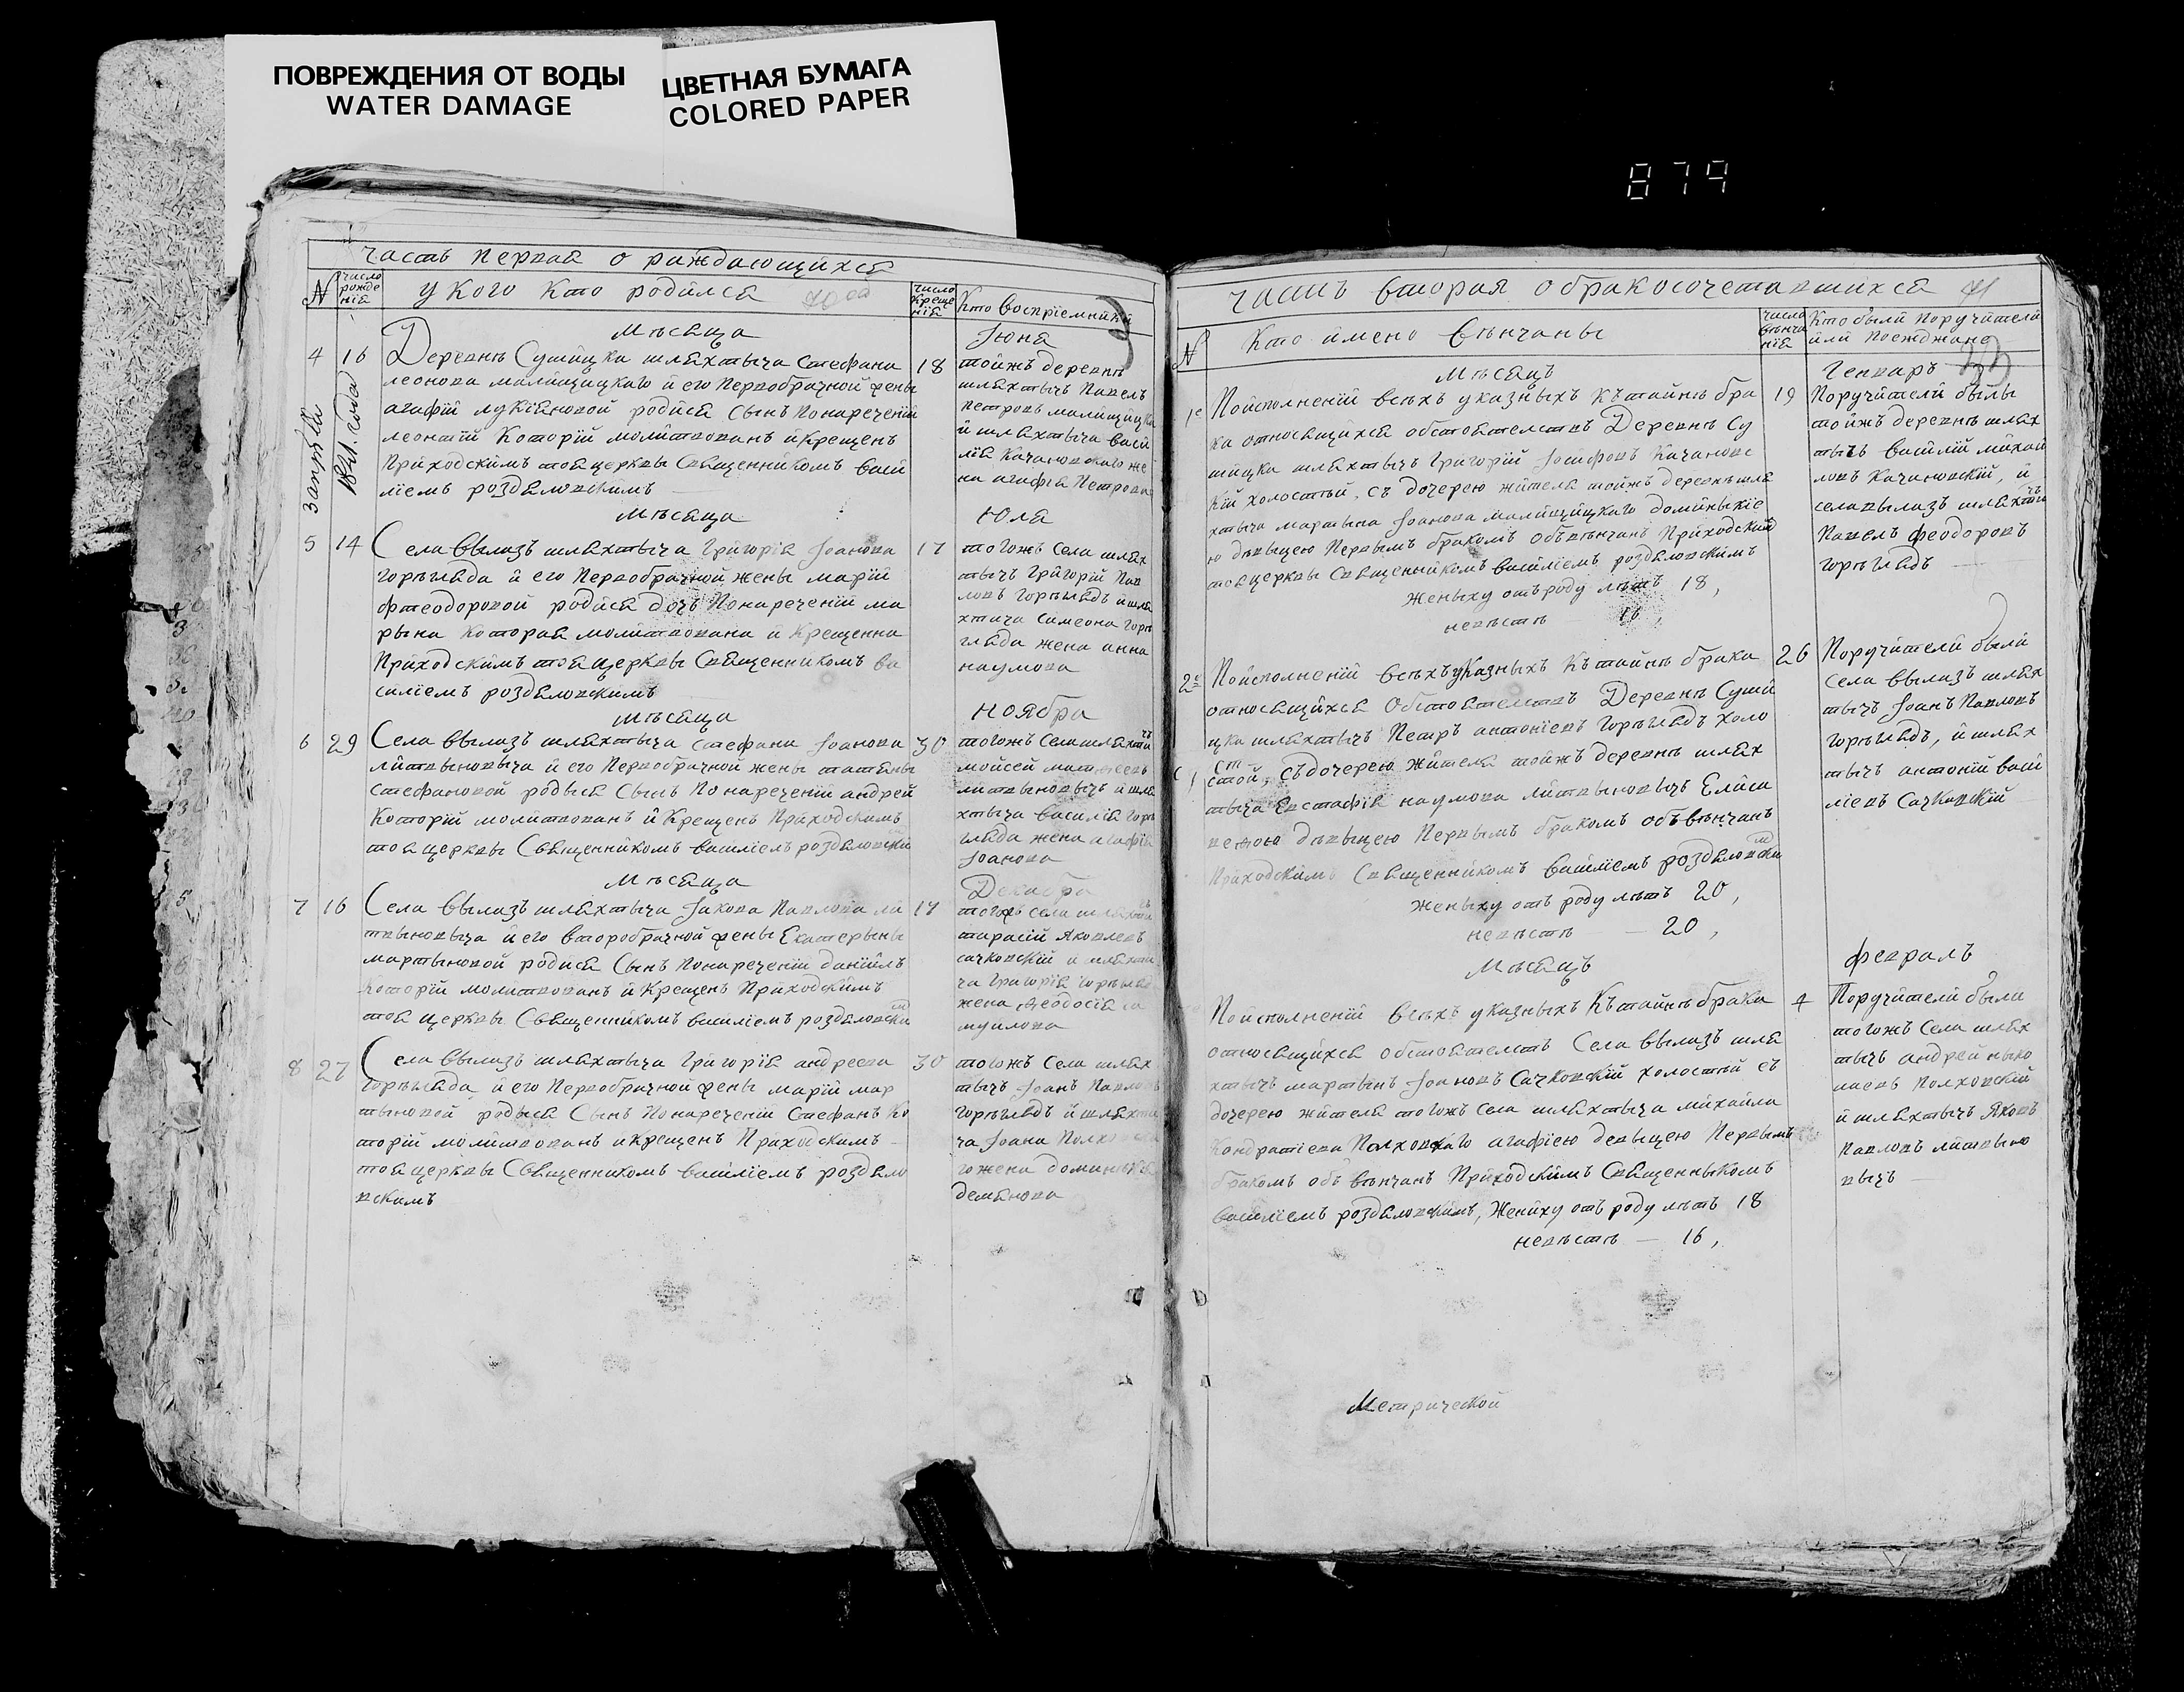 ПОВРЕЖДЕНИЯ ОТ ВОДЫ
WATER DAMAGE
ЦВЕТНАЯ БУМАГА
COLORED PAPER
879
часть первая о раждающихся
N
число рожде нія
у кого кто родился
число креще нія
кто воспріемники
Мѣсяца Іюня
4 16 Деревнѣ Сушицка шляхтыча Стефана 18
леонова малищицкаго и его первобрачной жены
агафіи лукіяновой родися сынъ понареченіи
леонтій которій молитвованъ и крещенъ
приходскимъ тоя церквы священникомъ васи
ліемъ роздяловскимъ
тойжъ деревнѣ
шляхтычъ павелъ
петровъ малищицкій
и шляхтыча васи
лія качановскаго же
на агафія петрова
за 1841 года
Мѣсяца Юля
5 14 Села вылазъ шляхтыча григорія Іоанова 17
горѣгляда и его первобрачной жены маріи
фтеодоровой родися дочь понареченіи ма
рына которая молитвована и крещенна
приходскимъ тоя церквы священникомъ ва
силіемъ роздяловскимъ
тогожъ села шлях
тычъ григорій пав
ловъ горѣглядъ и шля
хтича симеона горѣ
гляда жена анна
наумова
Мѣсяца Ноября
6 29 Села вылазъ шляхтыча стефана Іоанова 30
литвыновыча и его первобрачной жены татяны
стефановой родыся сынъ понареченіи андрей
которій молитвованъ и крещенъ приходскимъ
тоя церквы священникомъ василіемъ роздяловски
тогожъ села шляхты
мойсей
литвыновычъ и шля
хтыча василія горѣ
гляда жена агафія
Іоанова
Мѣсяца Декабра
7 16 Села вылазъ шляхтыча Іакова павлова ли 17
твыновыча и его второбрачной жены екатерыны
мартыновой родися сынъ понареченіи даніилъ
которій молитвованъ и крещенъ приходскимъ
тоя церквы священникомъ василіемъ роздяловски
тогожъ села
тарасій яковлевъ
сачковскій и шляхты
ча григорія горѣгляд
жена феодосія са
муилова
8 27 Села вылазъ шляхтыча григорія андреева 30
горѣгляда и его первобрачной жены маріи мар
тыновой родыся сынъ понареченіи стефанъ ко
торій молитвованъ и крещенъ приходскимъ
тоя церквы священникомъ василіемъ роздяло
вскимъ
тогожъ села шлях
тычъ Іоанъ павловъ
горѣглядъ и шляхты
ча Іоана
го жена доминыкія
демянова
часть вторая о бракосочетавшихся
41
N
кто имено вѣнчаны
число вѣнча нія
кто были поручители
или поезжане
Мѣсяцъ Генваръ
1е Поисполненіи всѣхъ указныхъ къ тайнѣ бра 19
ка относящихся обстоятелствъ Деревнѣ Су
шицка шляхтычъ григорій Іосифовъ качановс
кій холостый, съ дочерею жителя тойжъ деревнѣ шля
хтыча мартына Іоанова малищицкаго доминыкіе
ю дѣвыцею первымъ бракомъ объвѣнчанъ приходскимъ
тоя церквы священникомъ василіемъ роздяловскимъ
женыху отъ роду лѣтъ 18,
невѣстѣ 16,
Поручители были
тойжъ деревнѣ шлях
тычъ василій михай
ловъ качановскій, и
села вылазъ шляхтычъ
павелъ феодоровъ
горѣглядъ
2е Поисполненіи всѣхъ указныхъ къ тайнѣ брака 26
относящихся обстоятелствъ Деревнѣ Суши
цка шляхтычъ петръ антоніевъ горѣглядъ холо
стой, съ дочерею жителя тойжъ деревнѣ шлях
тыча евстафія наумова литвыновычъ елиса
ветою дѣвыцею первымъ бракомъ объвѣнчанъ
приходскимъ священникомъ василіемъ роздяловски
женыху отъ роду лѣтъ 20,
невѣстѣ — 20,
Поручители были
села вылазъ шлях
тычъ Іоанъ павловъ
горѣглядъ, и шлях
тычъ антоній васи
ліевъ сачковскій
Мѣсяцъ февралъ
Поисполненіи всѣхъ указныхъ къ тайнѣ брака 4
относящихся обстоятелствъ села вылазъ шля
хтычъ мартынъ Іоановъ сачковскій холостый съ
дочерею жителя тогожъ села шляхтыча михайла
кондратіева полховскаго агафіею девыцею первымъ
бракомъ объвѣнчанъ приходскимъ священныкомъ
василіемъ роздяловскимъ, жениху отъ роду лѣтъ 18
невѣстѣ — 16,
Поручители были
тогожъ села шлях
тычъ андрей ныко
лаевъ полховскій
и шляхтычъ яковъ
павловъ литвыно
вычъ
Метрической